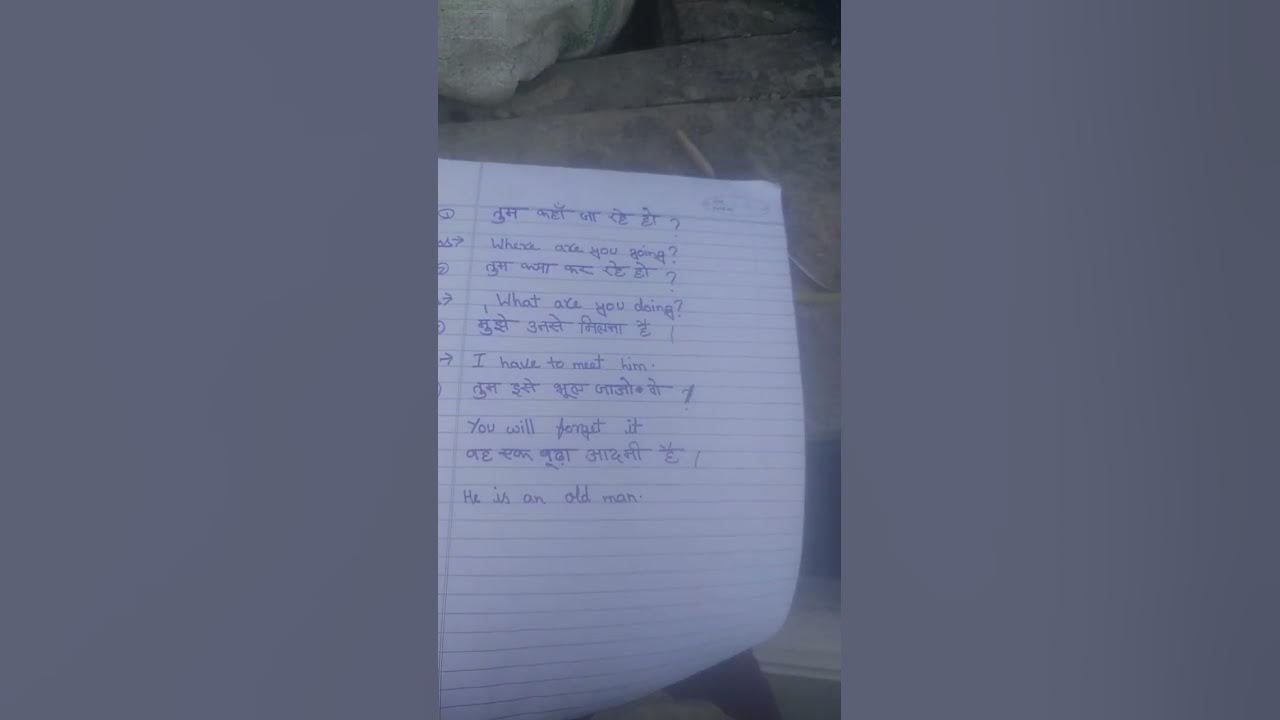 ① तुम कहाँ जा रहे हो ?
Where are you going?
तुम क्या कर रहे हो ?
What are you doing?
मुझे उनसे मिलना है ।
I have to meet him.
तुम इसे भूल जाओगे
You will forget it
वह एक बूढ़ा आदमी है ।
He is an old man.